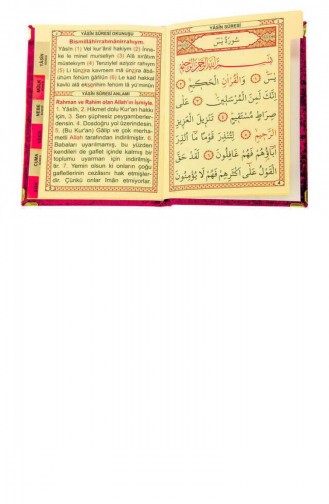 YÂSÎN SÛRESİ OKUNUŞU
Bismillâhirrahmânirrahıym.
Yâsîn (1) Vel kur'ânil hakiym (2) İnne-
ke le minel murselîyn (3) Alâ sırâtım
müstekıym (4) Tenziylel aziyzir rahıym
(5) Li tünzira kavmem mâ ünzira âbâ-
ünüm fehüm ğâfilün (6) Le kad hakkal
kavlü alâ ekserihim fehüm lâ yü'minûn
YÂSÎN SÛRESİ ANLAMI
Rahman ve Rahim olan Allah'ın ismiyle.
1. Yâsîn, 2. Hikmet dolu Kur'an hakkı
için, 3. Sen şüphesiz peygamberler-
densin, 4. Dosdoğru yol üzerindesin.
5. (Bu Kur'an) Gâlip ve çok merha-
metli Allah tarafından indirilmiştir. 6.
Babaları uyarılmamış, bu yüzden
kendileri de gaflet içinde kalmış bir
toplumu uyarman için indirilmiş-
tir. 7. Yemin olsun ki onların çoğu
gafletlerinin cezâsını hak etmişler-
dir. Çünkü onlar îmân etmiyorlar.
YÂSÎN
CUMA
YÂSÎN SÛRESİ
سُورَةُ يٰسٓ
بِسْمِ اللّٰهِ الرَّحْمٰنِ الرَّحِيمِ
يٰسٓ ۞ وَالْقُرْاٰنِ الْحَكِيمِ ۞
اِنَّكَ لَمِنَ الْمُرْسَلِينَ ۞ عَلٰى
صِرَاطٍ مُسْتَقِيمٍ ۞ تَنْزِيلَ الْعَزِيزِ
الرَّحِيمِ ۞ لِتُنْذِرَ قَوْمًا مَٓا اُنْذِرَ
اٰبَٓاؤُهُمْ فَهُمْ غَافِلُونَ ۞ لَقَدْ حَقَّ
الْقَوْلُ عَلٰٓى اَكْثَرِهِمْ فَهُمْ لَا يُؤْمِنُونَ